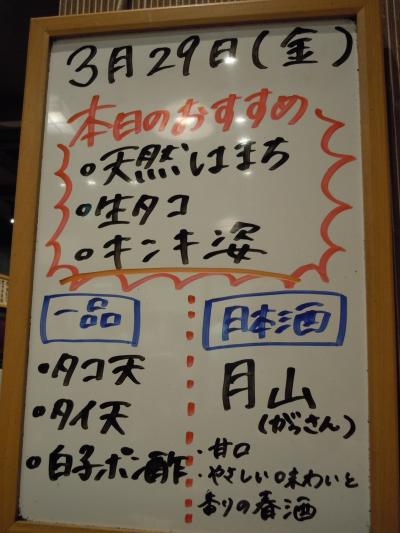 3月29日(金)
本日のおすすめ
○天然はまち
○生タコ
○キンキ姿
一品
・タコ天
・タイ天
○白子ポン酢
日本酒
月山
(がっさん)
・甘口
・やさしい味わいと
香りの春酒